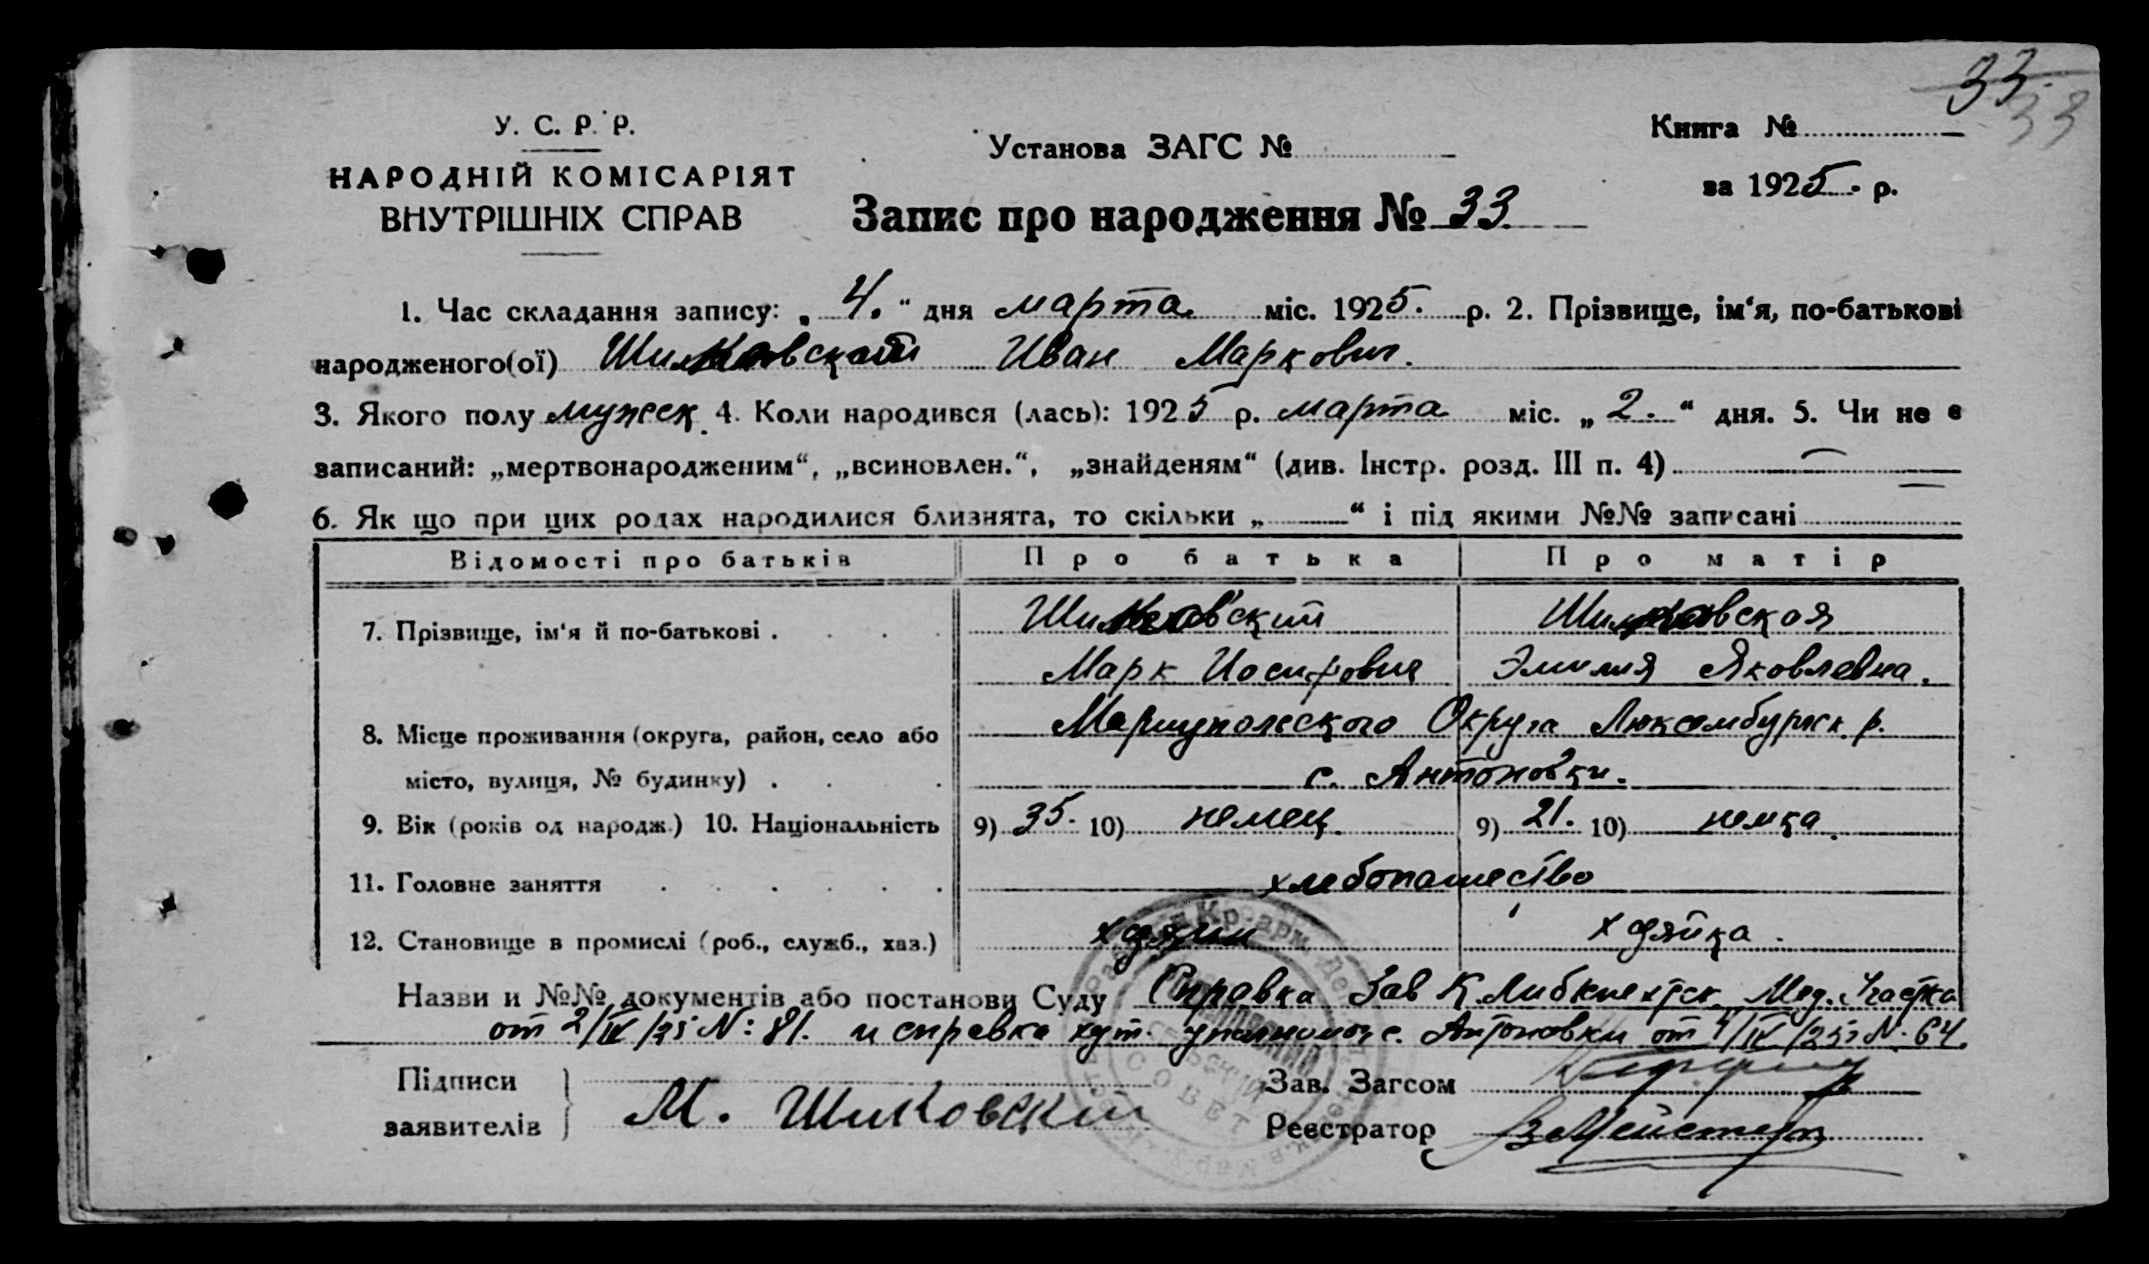 33.
33
У. С. Р. Р.
НАРОДНІЙ КОМІСАРІЯТ
ВНУТРІШНІХ СПРАВ
Установа ЗАГС №
Книга №
за 1925. р.
Запис про народження № 33.
1. Час складання запису: „ 4. “ дня марта міс. 1925. р. 2. Прізвище, ім‘я, по-батькові
народженого(ої) Иван Маркович.
3. Якого полу мужеск 4. Коли народився (лась): 1925 р. марта міс. „ 2. “ дня. 5. Чи не є
записаний: „мертвонародженим“, „всиновлен.“, „знайденям“ (див. Інстр. розд. III п. 4)
6. Як що при цих родах народилися близнята, то скільки „ “ і під якими №№ записані
Відомості про батьків Про батька Про матір
7. Прізвище, ім‘я й по-батькові .
Марк Иосифович Эмилия Яковлевна.
8. Місце проживання (округа, район, село або Мариупольского Округа Люксембургск. р.
місто, вулиця, № будинку) . с. Антоновки.
9. Вік (років од народж.) 10. Національність 9) 35. 10) немец. 9) 21. 10) немка.
11. Головне заняття хлебопашество
12. Становище в промислі (роб., служб., хаз.)
Назви и №№ документів або постанови Суду Справка Зав К. Либкнехтск. Мед. Участка
от 2/IV/25 N: 81. и справка хут. уполномоч с. Антоновки от 4/IV/25 N. 64.
Підписи
заявителів
М. Шиковский
Зав. Загсом
Реєстратор
СОВЕТ